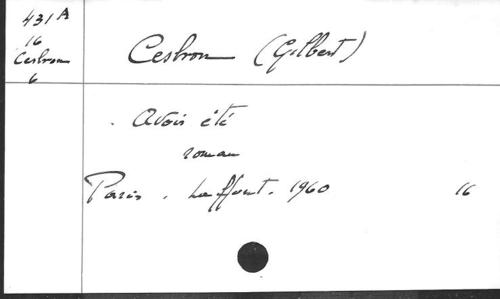 431 A
16
Cesbron
6
Cesbron (Gilbert)
. Avoir été
roman
Paris . Laffont. 1960 16